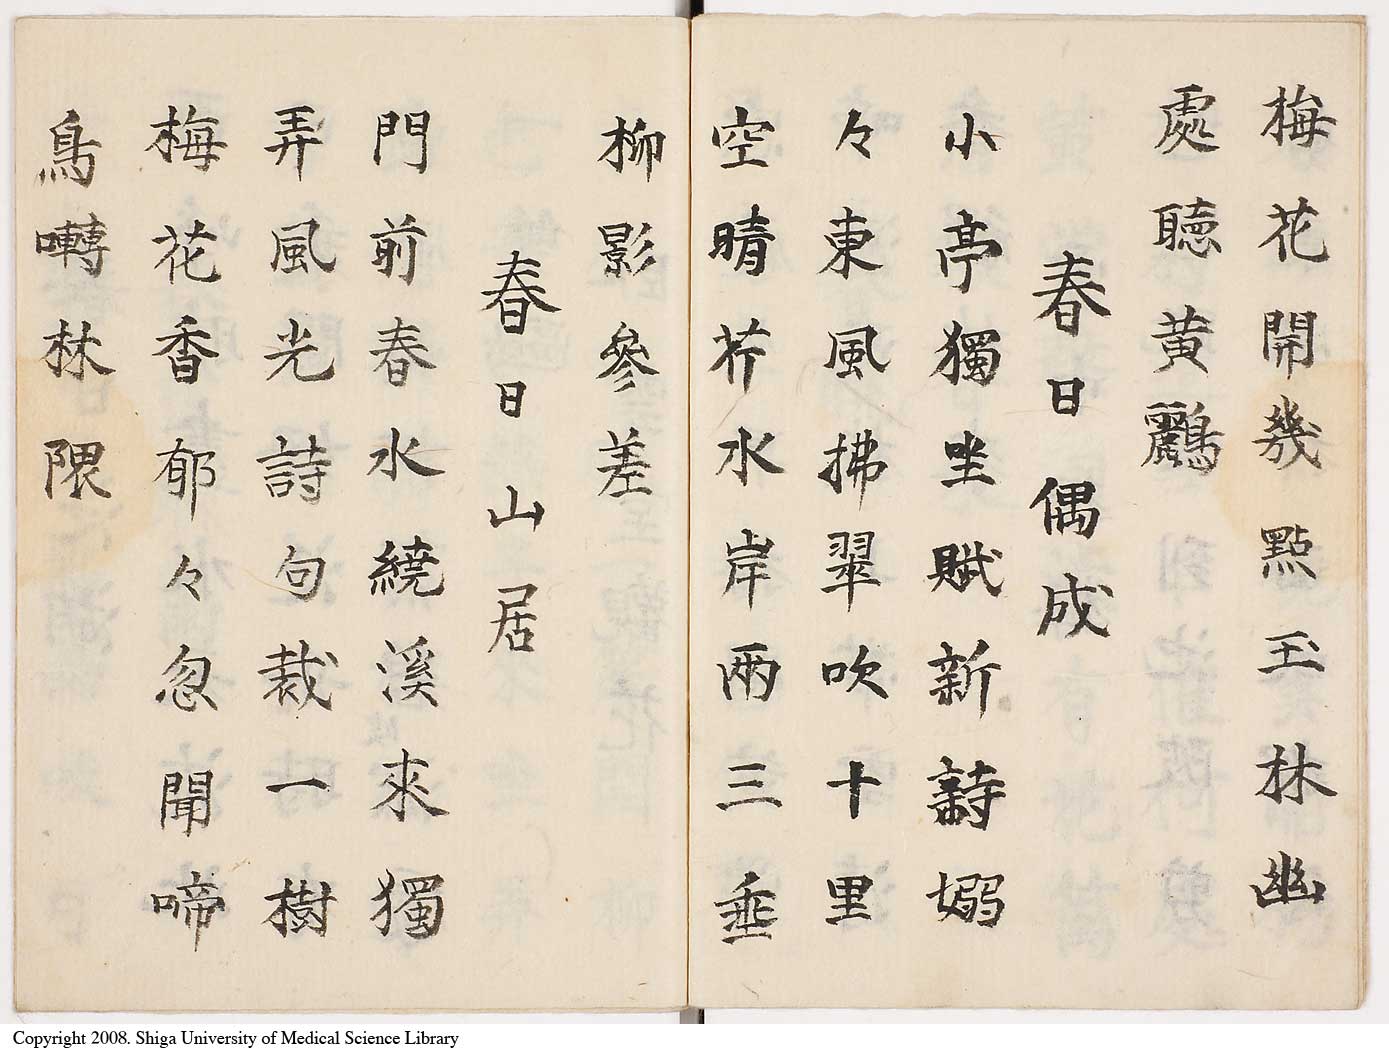 梅花開幾點玉林幽
處聴黄鸝
春日偶成
小亭獨坐賦新詩嫋
々東風拂翠吹十里
空晴芥水岸兩三垂
柳影參差
春日山居
門前春水繞溪來獨
弄風光詩句裁一樹
梅花香郁々忽聞啼
鳥囀林隈
Copyright 2008. Shiga University of Medical Science Library